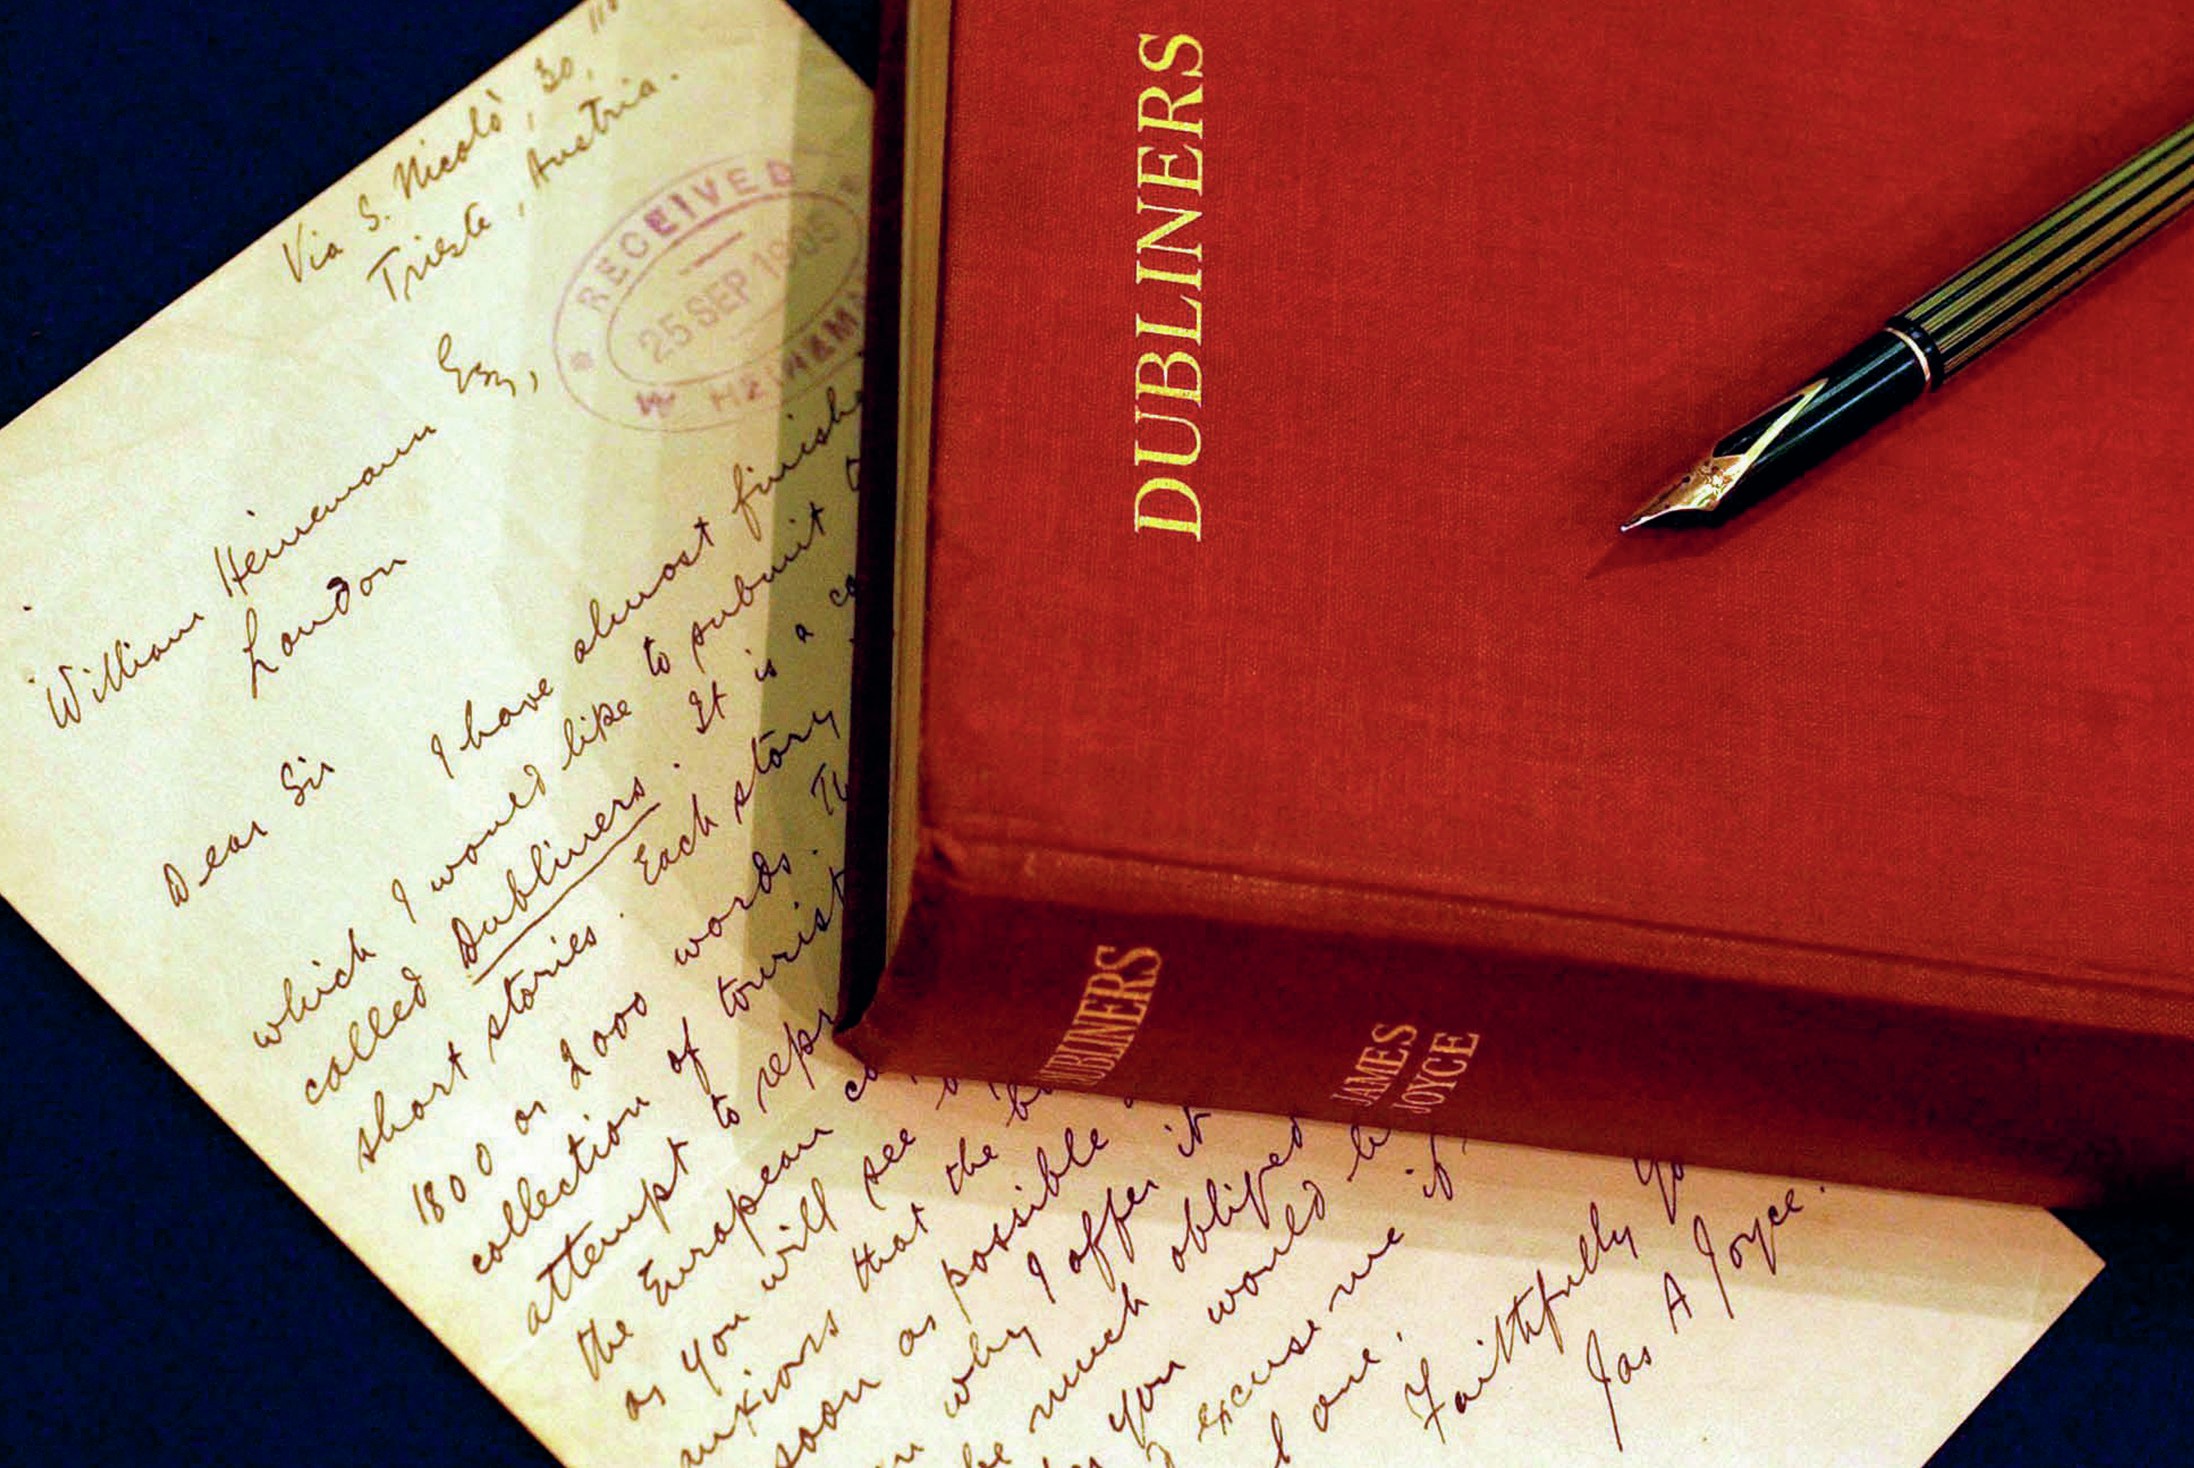 Via S. Nicolò, 30,
Trieste, Austria.
RECEIVED
25 SEP 1905
W HEINEMANN
William Heinemann Esq,
London
Dear Sir
I have almost finish
which I would like to submit
called Dubliners. It is a
short stories. Each story
1800 or 2000 words. Th
collection of tourist
attempt to repr
the European
as you will see
anxious that the
soon as possible
why I offer it
be much obliged
you would
excuse me if
one.
Faithfully yo
Jas A Joyce.
DUBLINERS
DUBLINERS
JAMES
JOYCE